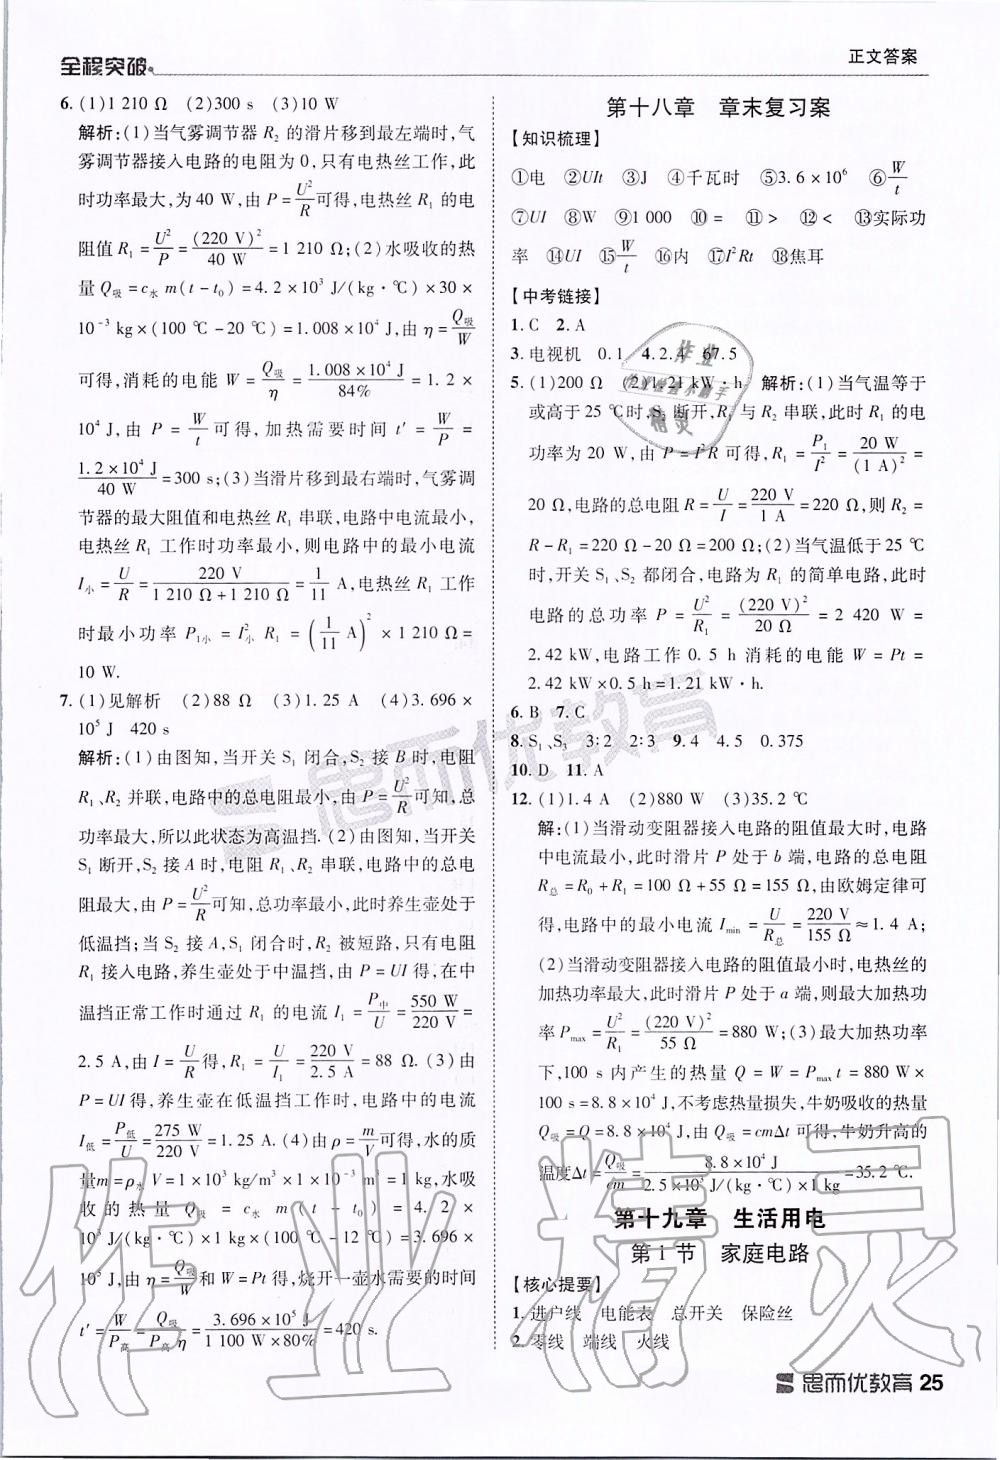 全程突破
正文答案
6. (1)1 210 Ω (2)300 s (3)10 W
解析:(1)当气雾调节器 R₂ 的滑片移到最左端时,气
雾调节器接入电路的电阻为 0,只有电热丝工作,此
时功率最大,为 40 W,由 P=U²/R可得,电热丝 R₁ 的电
阻值 R₁=U²/P=(220 V)²/40 W=1 210 Ω;(2)水吸收的热
量 Q吸=c水 m(t-t₀)=4.2×10³ J/(kg·℃)×30×
10⁻³ kg×(100 ℃-20 ℃)=1.008×10⁴ J,由 η=Q吸/W
可得,消耗的电能 W=Q吸/η=1.008×10⁴ J/84%=1.2×
10⁴ J,由 P=W/t可得,加热需要时间 t′=W/P=
1.2×10⁴ J/40 W=300 s;(3)当滑片移到最右端时,气雾调
节器的最大阻值和电热丝 R₁ 串联,电路中电流最小,
电热丝 R₁ 工作时功率最小,则电路中的最小电流
I小=U/R=220 V/(1 210 Ω+1 210 Ω)=1/11 A,电热丝 R₁ 工作
时最小功率 P₁小=I小² R₁=(1/11 A)²×1 210 Ω=
10 W.
7. (1)见解析 (2)88 Ω (3)1.25 A (4)3.696×
10⁵ J 420 s
解析:(1)由图知,当开关 S₁ 闭合,S₂ 接 B 时,电阻
R₁、R₂ 并联,电路中的总电阻最小,由 P=U²/R可知,总
功率最大,所以此状态为高温挡.(2)由图知,当开关
S₁ 断开,S₂ 接 A 时,电阻 R₁、R₂ 串联,电路中的总电
阻最大,由 P=U²/R可知,总功率最小,此时养生壶处于
低温挡;当 S₂ 接 A,S₁ 闭合时,R₂ 被短路,只有电阻
R₁ 接入电路,养生壶处于中温挡,由 P=UI 得,在中
温挡正常工作时通过 R₁ 的电流 I₁=P中/U=550 W/220 V=
2.5 A,由 I=U/R得,R₁=U/I₁=220 V/2.5 A=88 Ω.(3)由
P=UI得,养生壶在低温挡工作时,电路中的电流
I低=P低/U=275 W/220 V=1.25 A.(4)由 ρ=m/V可得,水的质
量m=ρ水V=1×10³ kg/m³×1×10⁻³ m³=1 kg,水吸
收的热量 Q吸=c水 m(t-t₀)=4.2×
10³ J/(kg·℃)×1 kg×(100 ℃-12 ℃)=3.696×
10⁵ J,由 η=Q吸/W和 W=Pt 得,烧开一壶水需要的时间
t′=W/P高=Q吸/P高η=3.696×10⁵ J/(1 100 W×80%)=420 s.
第十八章 章末复习案
【知识梳理】
①电 ②UIt ③J ④千瓦时 ⑤3.6×10⁶ ⑥W/t
⑦UI ⑧W ⑨1 000 ⑩= ⑪> ⑫< ⑬实际功
率 ⑭UI ⑮W/t ⑯内 ⑰I²Rt ⑱焦耳
【中考链接】
1. C 2. A
3. 电视机 0.1 4. 2.4 67.5
5. (1)200 Ω (2)1.21 kW·h 解析:(1)当气温等于
或高于 25 ℃时,S₂ 断开,R₁ 与 R₂ 串联,此时 R₁ 的电
功率为 20 W,由 P=I²R 可得,R₁=P₁/I²=20 W/(1 A)²=
20 Ω,电路的总电阻 R=U/I=220 V/1 A=220 Ω,则 R₂=
R-R₁=220 Ω-20 Ω=200 Ω;(2)当气温低于 25 ℃
时,开关 S₁、S₂ 都闭合,电路为 R₁ 的简单电路,此时
电路的总功率 P=U²/R₁=(220 V)²/20 Ω=2 420 W=
2.42 kW,电路工作 0.5 h 消耗的电能 W=Pt=
2.42 kW×0.5 h=1.21 kW·h.
6. B 7. C
8. S₁、S₃ 3∶2 2∶3 9. 4 4.5 0.375
10. D 11. A
12. (1)1.4 A (2)880 W (3)35.2 ℃
解:(1)当滑动变阻器接入电路的阻值最大时,电路
中电流最小,此时滑片 P 处于 b 端,电路的总电阻
R总=R₀+R₁=100 Ω+55 Ω=155 Ω,由欧姆定律可
得,电路中的最小电流 Imin=U/R总=220 V/155 Ω≈1.4 A;
(2)当滑动变阻器接入电路的阻值最小时,电热丝的
加热功率最大,此时滑片 P 处于 a 端,则最大加热功
率 Pmax=U²/R₁=(220 V)²/55 Ω=880 W;(3)最大加热功率
下,100 s 内产生的热量 Q=W=Pmax t=880 W×
100 s=8.8×10⁴ J,不考虑热量损失,牛奶吸收的热量
Q吸=Q=8.8×10⁴ J,由 Q吸=cmΔt 可得,牛奶升高的
温度Δt=Q吸/cm=8.8×10⁴ J/(2.5×10³ J/(kg·℃)×1 kg)=35.2 ℃.
第十九章 生活用电
第 1 节 家庭电路
【核心提要】
1. 进户线 电能表 总开关 保险丝
2. 零线 端线 火线
思而优教育 25
思而优教育
作业精灵